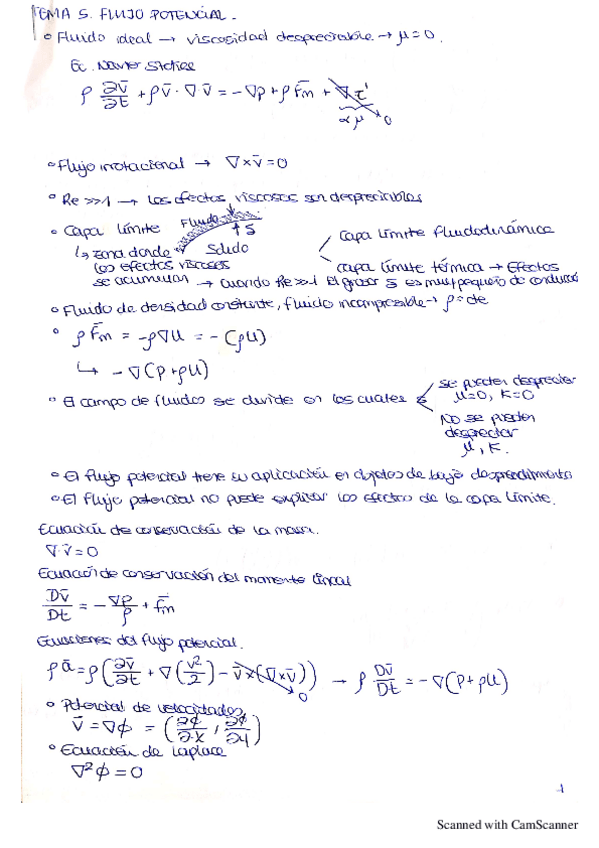 TEMA 5. FLUJO POTENCIAL.
° Fluido ideal → viscosidad despreciable → μ = 0.
Ec. Navier Stokes
ρ ∂v̄/∂t + ρv̄ · ∇v̄ = -∇p + ρF̄m + ∇τ'
∝ μ → 0
° Flujo irrotacional → ∇×v̄ = 0
° Re >> 1 → Los efectos viscosos son despreciables
° Capa límite
Fluido
↑ δ
Sólido
↳ zona donde los efectos viscosos se acumulan
Capa límite fluidodinámica
capa límite térmica → Efectos de conducc
→ cuando Re>>1 El grosor δ es muy pequeño
° Fluido de densidad constante, fluido incompresible → ρ = cte
° ρF̄m = -ρ∇U = -(ρU)
↳ -∇(P+ρU)
° El campo de fluidos se divide en los cuales
se pueden despreciar
μ=0, K=0
NO se pueden
despreciar
μ, K.
° El flujo potencial tiene su aplicación en objetos de bajo desprendimiento
° El flujo potencial no puede explicar los efectos de la capa límite.
Ecuación de conservación de la masa.
∇·v̄ = 0
Ecuación de conservación del momento lineal
Dv̄/Dt = -∇P/ρ + f̄m
Ecuaciones del flujo potencial.
ρā = ρ(∂v̄/∂t + ∇(v²/2) - v̄×(∇×v̄)) → ρ Dv̄/Dt = -∇(P+ρU)
0
° Potencial de velocidades
v̄ = ∇ϕ = (∂ϕ/∂x, ∂ϕ/∂y)
° Ecuación de Laplace
∇²ϕ = 0
1
Scanned with CamScanner